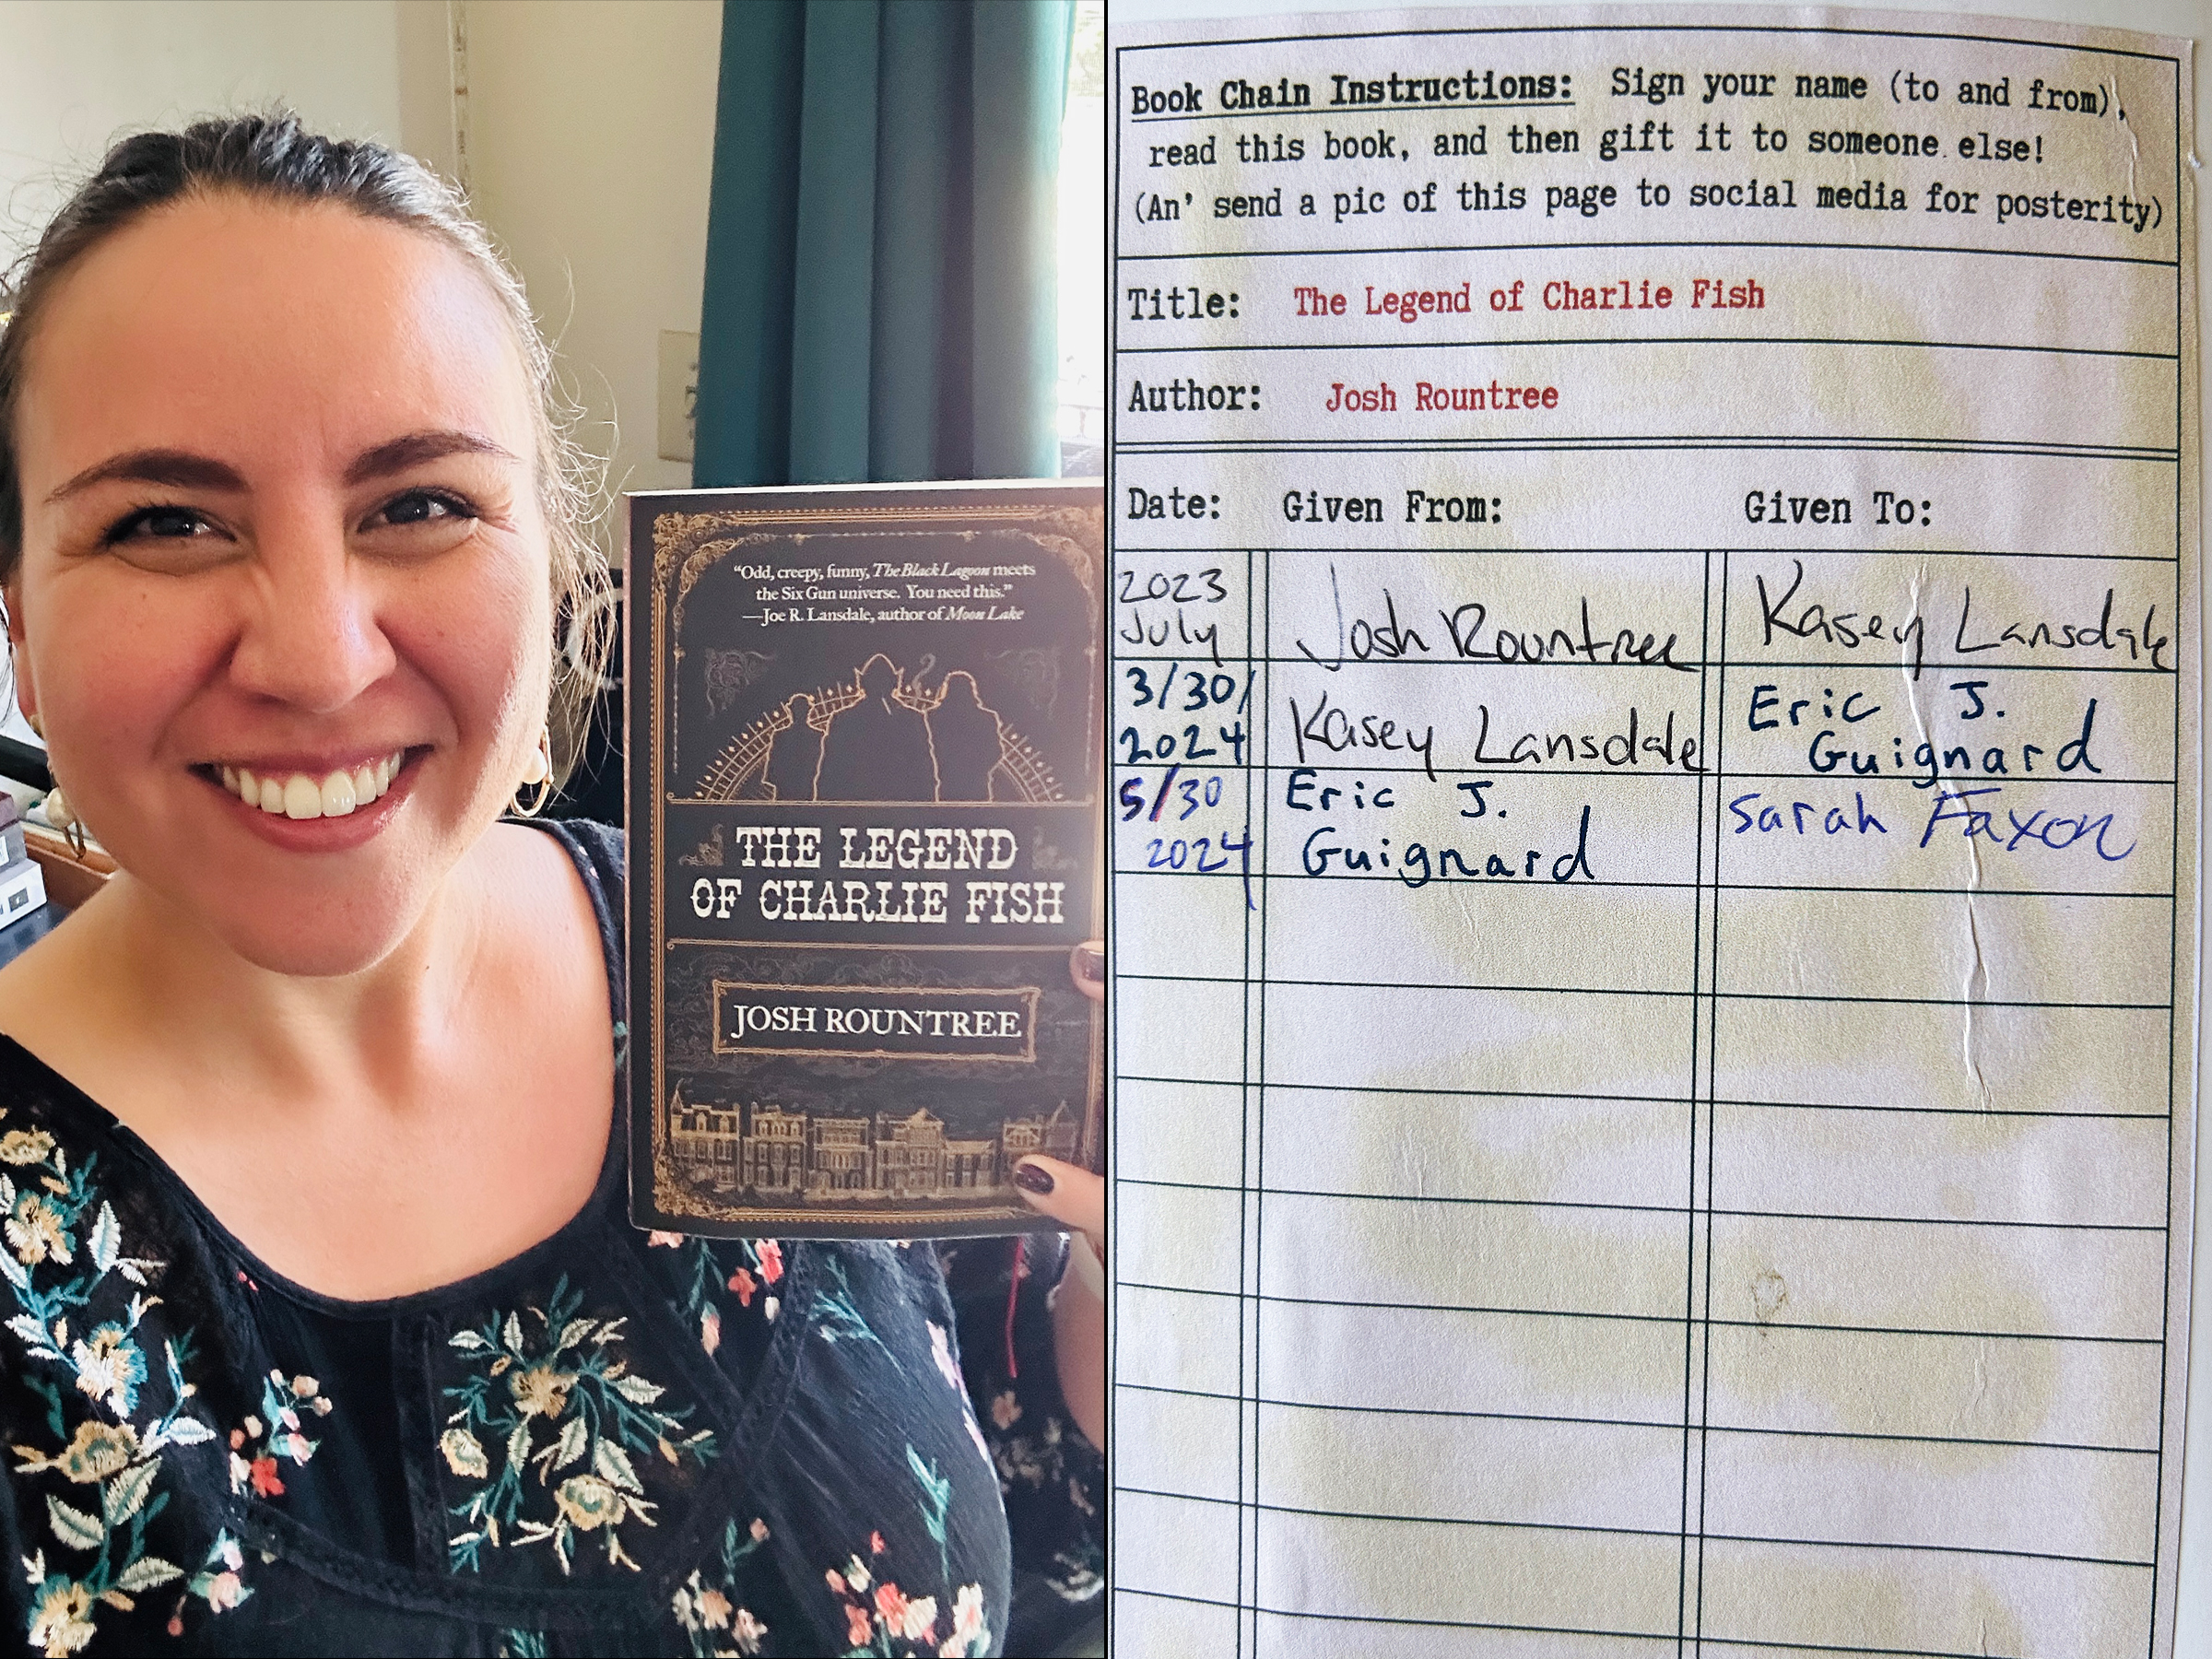 “Odd, creepy, funny, The Black Lagoon meets
the Six Gun universe. You need this.”
—Joe R. Lansdale, author of Moon Lake
THE LEGEND
OF CHARLIE FISH
JOSH ROUNTREE
Book Chain Instructions: Sign your name (to and from),
read this book, and then gift it to someone else!
(An' send a pic of this page to social media for posterity)
Title: The Legend of Charlie Fish
Author: Josh Rountree
Date: Given From: Given To:
2023
July Josh Rountree Kasey Lansdale
3/30/
2024 Kasey Lansdale Eric J.
Guignard
5/30
2024 Eric J.
Guignard Sarah Faxon